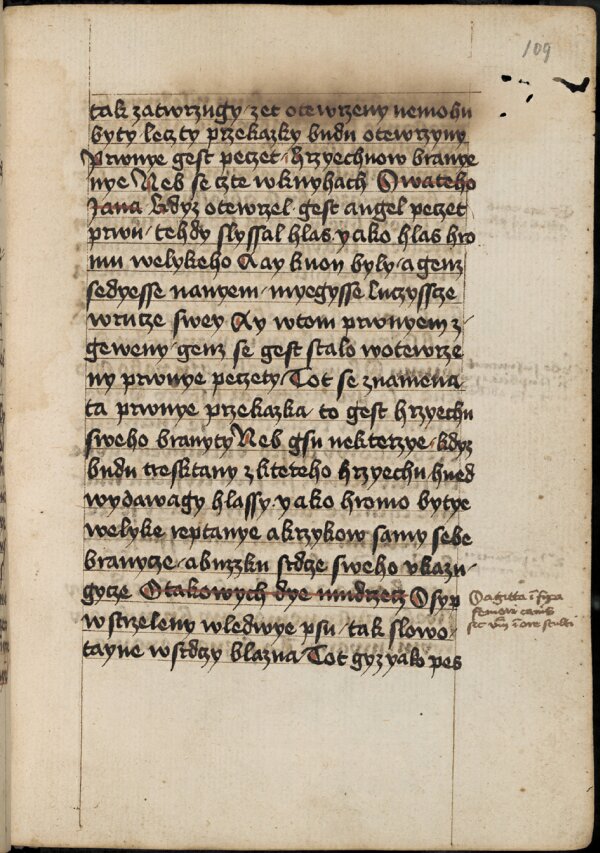 109
tak zatwrzugy zet otewrzeny nemohu
byty leczty przekazky budu otewrzyny
Prwnye gest peczet hrzyechuow branye
nye Neb se czte wknyhach Swateho
Jana Kdyz otewrzel gest angel peczet
prwu tehdy slyssal hlas yako hlas hro
mu welykeho Aay kuon byly a genz
sedyesse nanyem myegysse luczysscze
wrucze swey Ay wtom prwnyem z
geweny genz se gest stalo wotewrze
ny prwnye peczety Tot se znamena
ta prwnye przekazka to gest hrzyechu
sweho branyty Neb gsu nekterzye kdyz
budu tresktany zktereho hrzyechu hned
wydawagy hlassy yako hromo bytye
welyke reptanye a krzykow samy sebe
branycze aburzku srdcze sweho vkazu
gycze Otakowych dye mudrzecz Ssyp
wstrzeleny wledwye psu tak slowo
tayne wsrdczy blazna Tot gyz yako pes
Sagitta i fixa
femori canis
sic vm i ore stulti